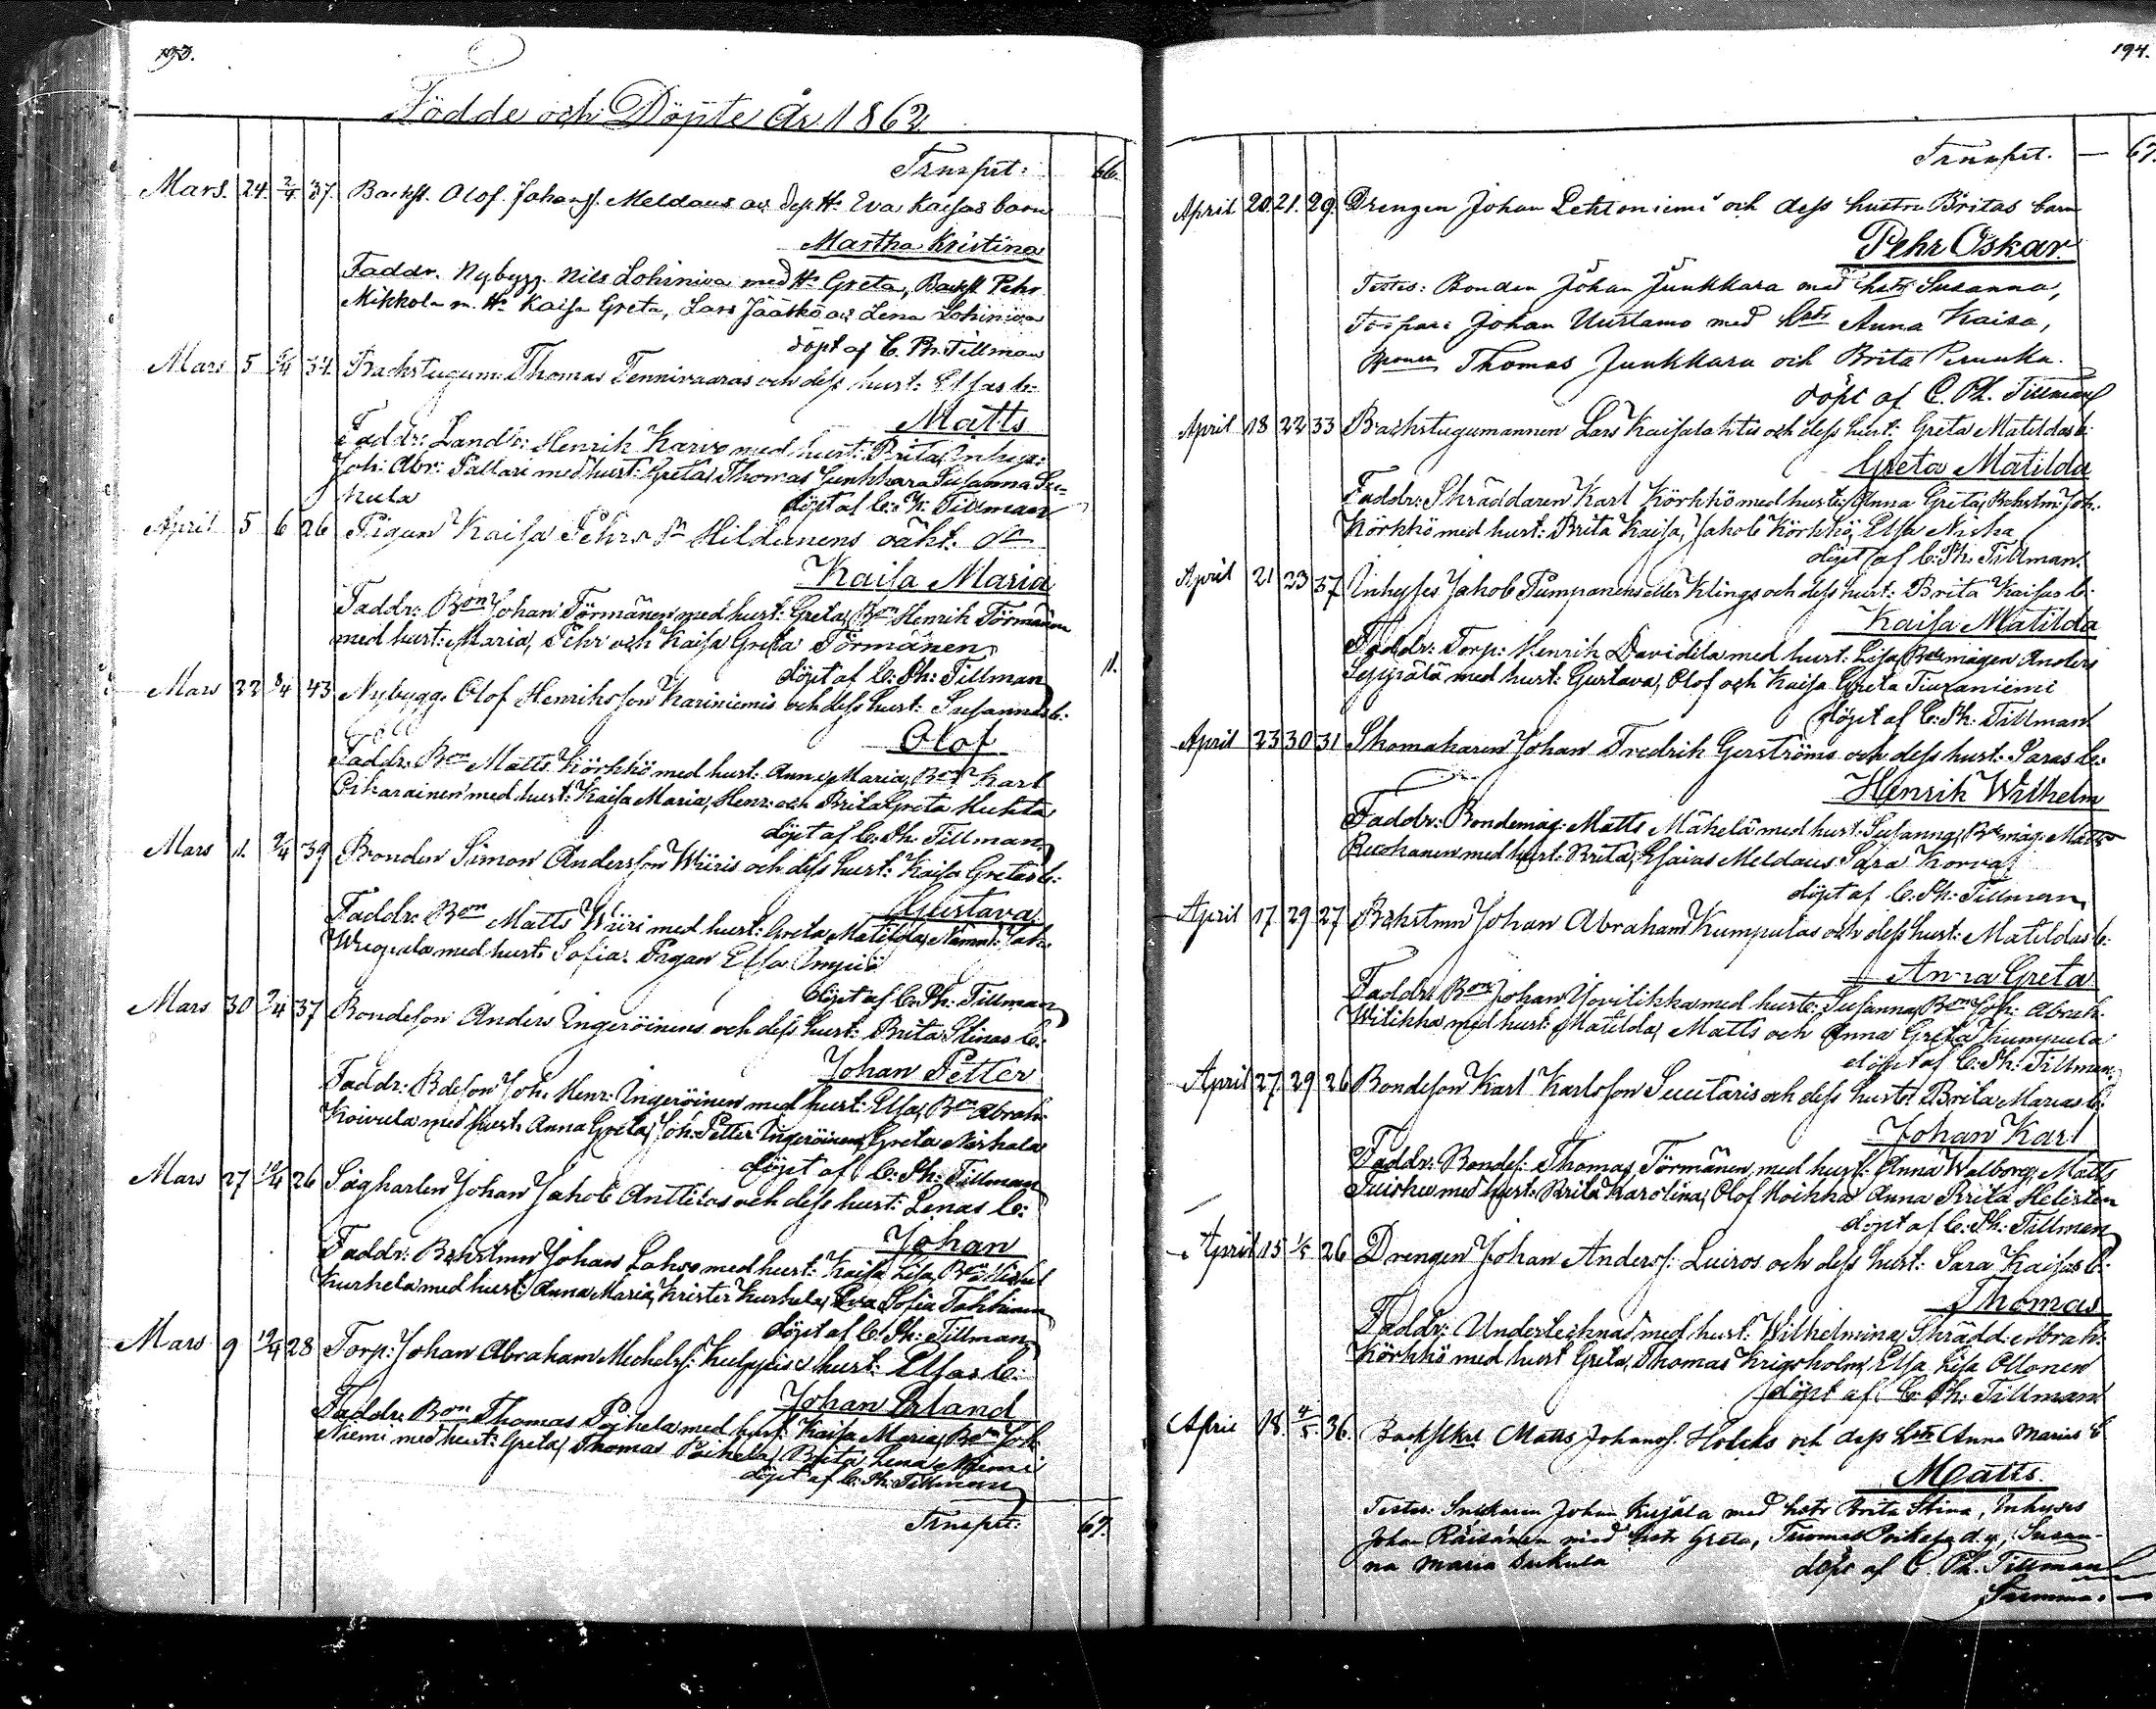 193.
Födde och Döpte År 1862
Trnsprt: 66.
Mars. 24 2/4 37. Backst. Olof Johanss. Meldaus och dess H. Eva Kaisas barn
Martha Kristina
Faddr. Nybygg. Nils Lohiniva med H. Greta, Backst. Pehr
Mikkola m. H. Kaisa Greta, Lars Jääskö och Lena Lohiniva
döpt af C. Ph. Tillman
Mars 5 /4 34. Backstugum: Thomas Tennivaaras och dess hust: Elsas b:
Matts
Faddr: Landb: Henrik Karvo med hust: Brita, Inhys:
Joh: Abr: Pallari med hust: Greta, Thomas Junkkara Susanna Su-
kula döpt af C: Ph: Tillman
April 5 6 26 Pigan Kaisa Pehrs dr Hildunens oäkt: dr
Kaisa Maria
Faddr: Bon Johan Törmänen med hust: Greta, Bon Henrik Törmänen
med hust: Maria, Pehr och Kaisa Greta Törmänen
döpt af C: Ph: Tillman 11.
Mars 22 8/4 43 Nybygg. Olof Henriksson Kariniemis och dess hust: Susannas b:
Olof
Faddr: Bon Matts Körkkö med hust: Anna Maria, Bon Karl
Pikarainen med hust: Kaisa Maria, Henr: och Brita Greta Huhta
döpt af C: Ph: Tillman
Mars 11. 9/4 39 Bonden Simon Andersson Wiiris och dess hust: Kaisa Gretas b:
Gustava
Faddr: Bon Matts Wiiri med hust: Greta Matilda, Nämnd: Joh:
med hust: Sofia: Pigan Elsa Impiö
döpt af C: Ph: Tillman
Mars 30 9/4 37 Bondeson Anders Ingeröinens och dess hust: Brita Stinas b:
Johan Petter
Faddr: Bdeson Joh. Henr: Ingeröinen med hust: Elsa, Bon Abrah:
Koivula med hust: Anna Greta, Joh: Petter Ingeröinen, Greta Niskala
döpt af C: Ph: Tillman
Mars 27 10/4 26 Sågkarlen Johan Jakob Anttilas och dess hust: Lenas b:
Johan
Faddr: Bakstmn Johan Lahvo med hust: Kaisa Lisa, Bon Mickel
Kurkela med hust: Anna Maria, Krister Kurkela, Eva Sofia
döpt af C: Ph: Tillman
Mars 9 19/4 28 Torp: Johan Abraham Michelss: Kulppis hust: Elsas b:
Johan Erland
Faddr: Bon Thomas Poikela med hust: Kaisa Maria, Bon Joh:
Niemi med hust: Greta, Thomas Poikela, Brita Lena Niemi
döpt af C: Ph: Tillman
Trnsprt: 67.
194.
Trnsprt. — 67.
April 20. 21. 29. Drengen Johan Lehtoniemi och dess hustru Britas barn
Pehr Oskar.
Testes: Bonden Johan Junkkara med hstr Susanna,
Torpare Johan Uurtamo med hstr Anna Kaisa,
Thomas Junkkara och Brita Ruuska.
döpt af C. Ph. Tillman
April 18 22 33 Backstugumannen Lars Kaisalahtis och dess hust: Greta Matildas b:
Greta Matilda
Faddr: Skräddaren Karl Körkkö med hust: Anna Greta, Bakstm: Joh:
Körkkö med hust: Brita Kaisa, Jakob Körkkö, Elsa Niska
döpt af C: Ph: Tillman.
April 21 23 37 Inhyses Jakob Pumpanens eller Klings och dess hust: Brita Kaisas b:
Kaisa Matilda
Faddr: Torp: Henrik Davidila med hust: Lisa, Bdemågen Anders
med hust: Gustava, Olof och Kaisa Greta Tiuraniemi
döpt af C: Ph: Tillman
April 23 30 31 Skomakaren Johan Fredrik Gerströms och dess hust: Saras b:
Henrik Wilhelm
Faddr: Bondemåg: Matts Mäkelä med hust: Susanna, Bdemåg: Matts
Ruokanen med hust: Brita, Esaias Meldaus Sara Korva
döpt af C: Ph: Tillman
April 17 29 27 Bakstmn Johan Abraham Kumpulas och dess hust: Matildas b:
Anna Greta
Faddr: Bon Johan med hust: Susanna, Bon Joh: Abrah:
Wilikka med hust: Matilda, Matts och Anna Greta Kumpula
döpt af C: Ph: Tillman
April 27. 29 26 Bondeson Karl Karlsson Suutaris och dess hust: Brita Marias b:
Johan Karl
Faddr: Bondes: Thomas Törmänen med hust: Anna Walborg, Matts
Tuisku med hust: Brita Karolina, Olof Koikka Anna Brita Helistén
döpt af C: Ph: Tillman
April 15 1/5 26 Drengen Johan Anderss: Luiros och dess hust: Sara Kaisas b:
Thomas
Faddr: Undertecknad med hust: Wilhelmina, Skrädd: Abrah:
Körkkö med hust Greta, Thomas Krigsholm, Elsa Lisa Ollonen
döpt af C: Ph: Tillman
April 18. 4/5 36. Backstkrl Matts Johanss. Holcks och dess hstr Anna Marias b
Matts.
Testes: Snickaren Johan Kujala med hstr Brita Stina, Inhyses
Johan Räisänen med hstr Greta, Thomas Poikela d.y, Susan-
na Maria Sukula döpt af C. Ph. Tillman
Summa: —